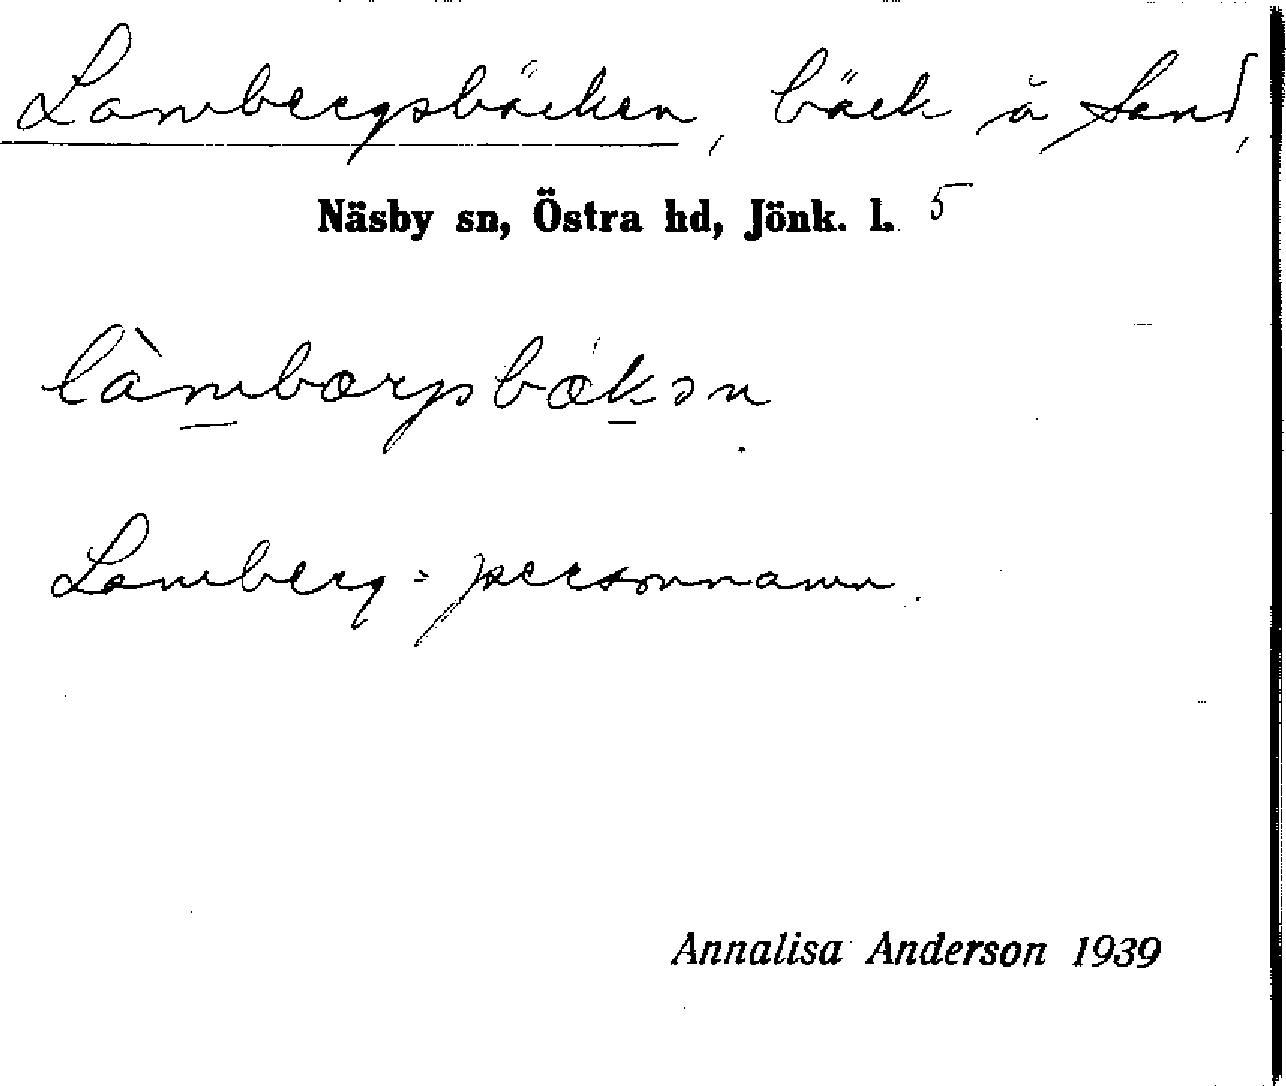 Lambergsbäcken, bäck å Sand,
Näsby sn, Östra hd, Jönk. l. 5
làmbærjsbækən
Lamberg = personnamn.
Annalisa Anderson 1939